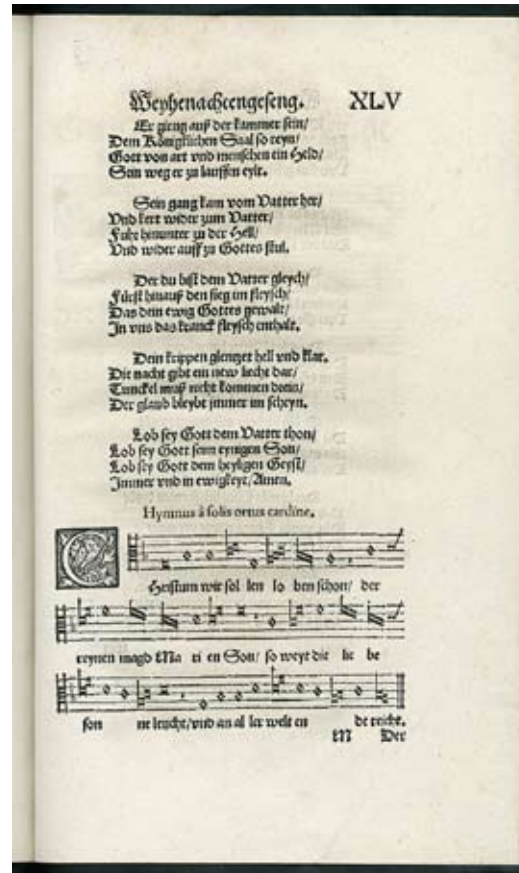 Weyhenachtengeseng. XLV
Er gieng auß der kammer sein/
Dem Königklichen Saal so reyn/
Gott von art vnd menschen ein Held/
Sein weg er zu lauffen eylt.
Sein gang kam vom Vatter her/
Vnd kert wider zum Vatter/
Fuhr hinunter zu der Hell/
Vnd wider auff zu Gottes stul.
Der du bist dem Vatter gleych/
Fürst hinauß den sieg im fleysch/
Das dein ewig Gottes gewalt/
In vns das kranck fleysch enthalt.
Dein krippen glentzet hell vnd klar,
Die nacht gibt ein new liecht dar/
Tunckel muß nicht kommen drein/
Der glaub bleybt jmmer im scheyn.
Lob sey Gott dem Vatter thon/
Lob sey Gott seim eynigen Son/
Lob sey Gott dem heyligen Geyst/
Jmmer vnd in ewigkeyt/ Amen.
Hymnus à solis ortus cardine.
CHristum wir sol len lo ben schon/ der
reynen magd Ma ri en Son/ so weyt die lie be
son ne leucht/ vnd an al ler welt en de reicht.
M Der